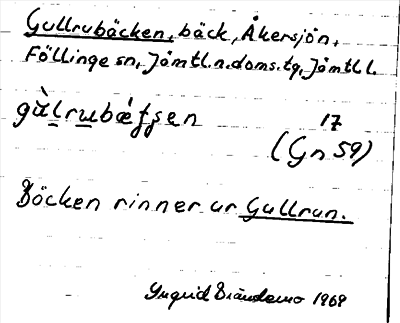 Gullrubäcken, bäck, Åkersjön,
Föllinge sn, Jämtl.n.doms.tg, Jämtl l.
gu̇̀lrubǽt̯ʂen 17
(Gn 59)
Bäcken rinner ur Gullrun.
Ingrid Brändemo 1969